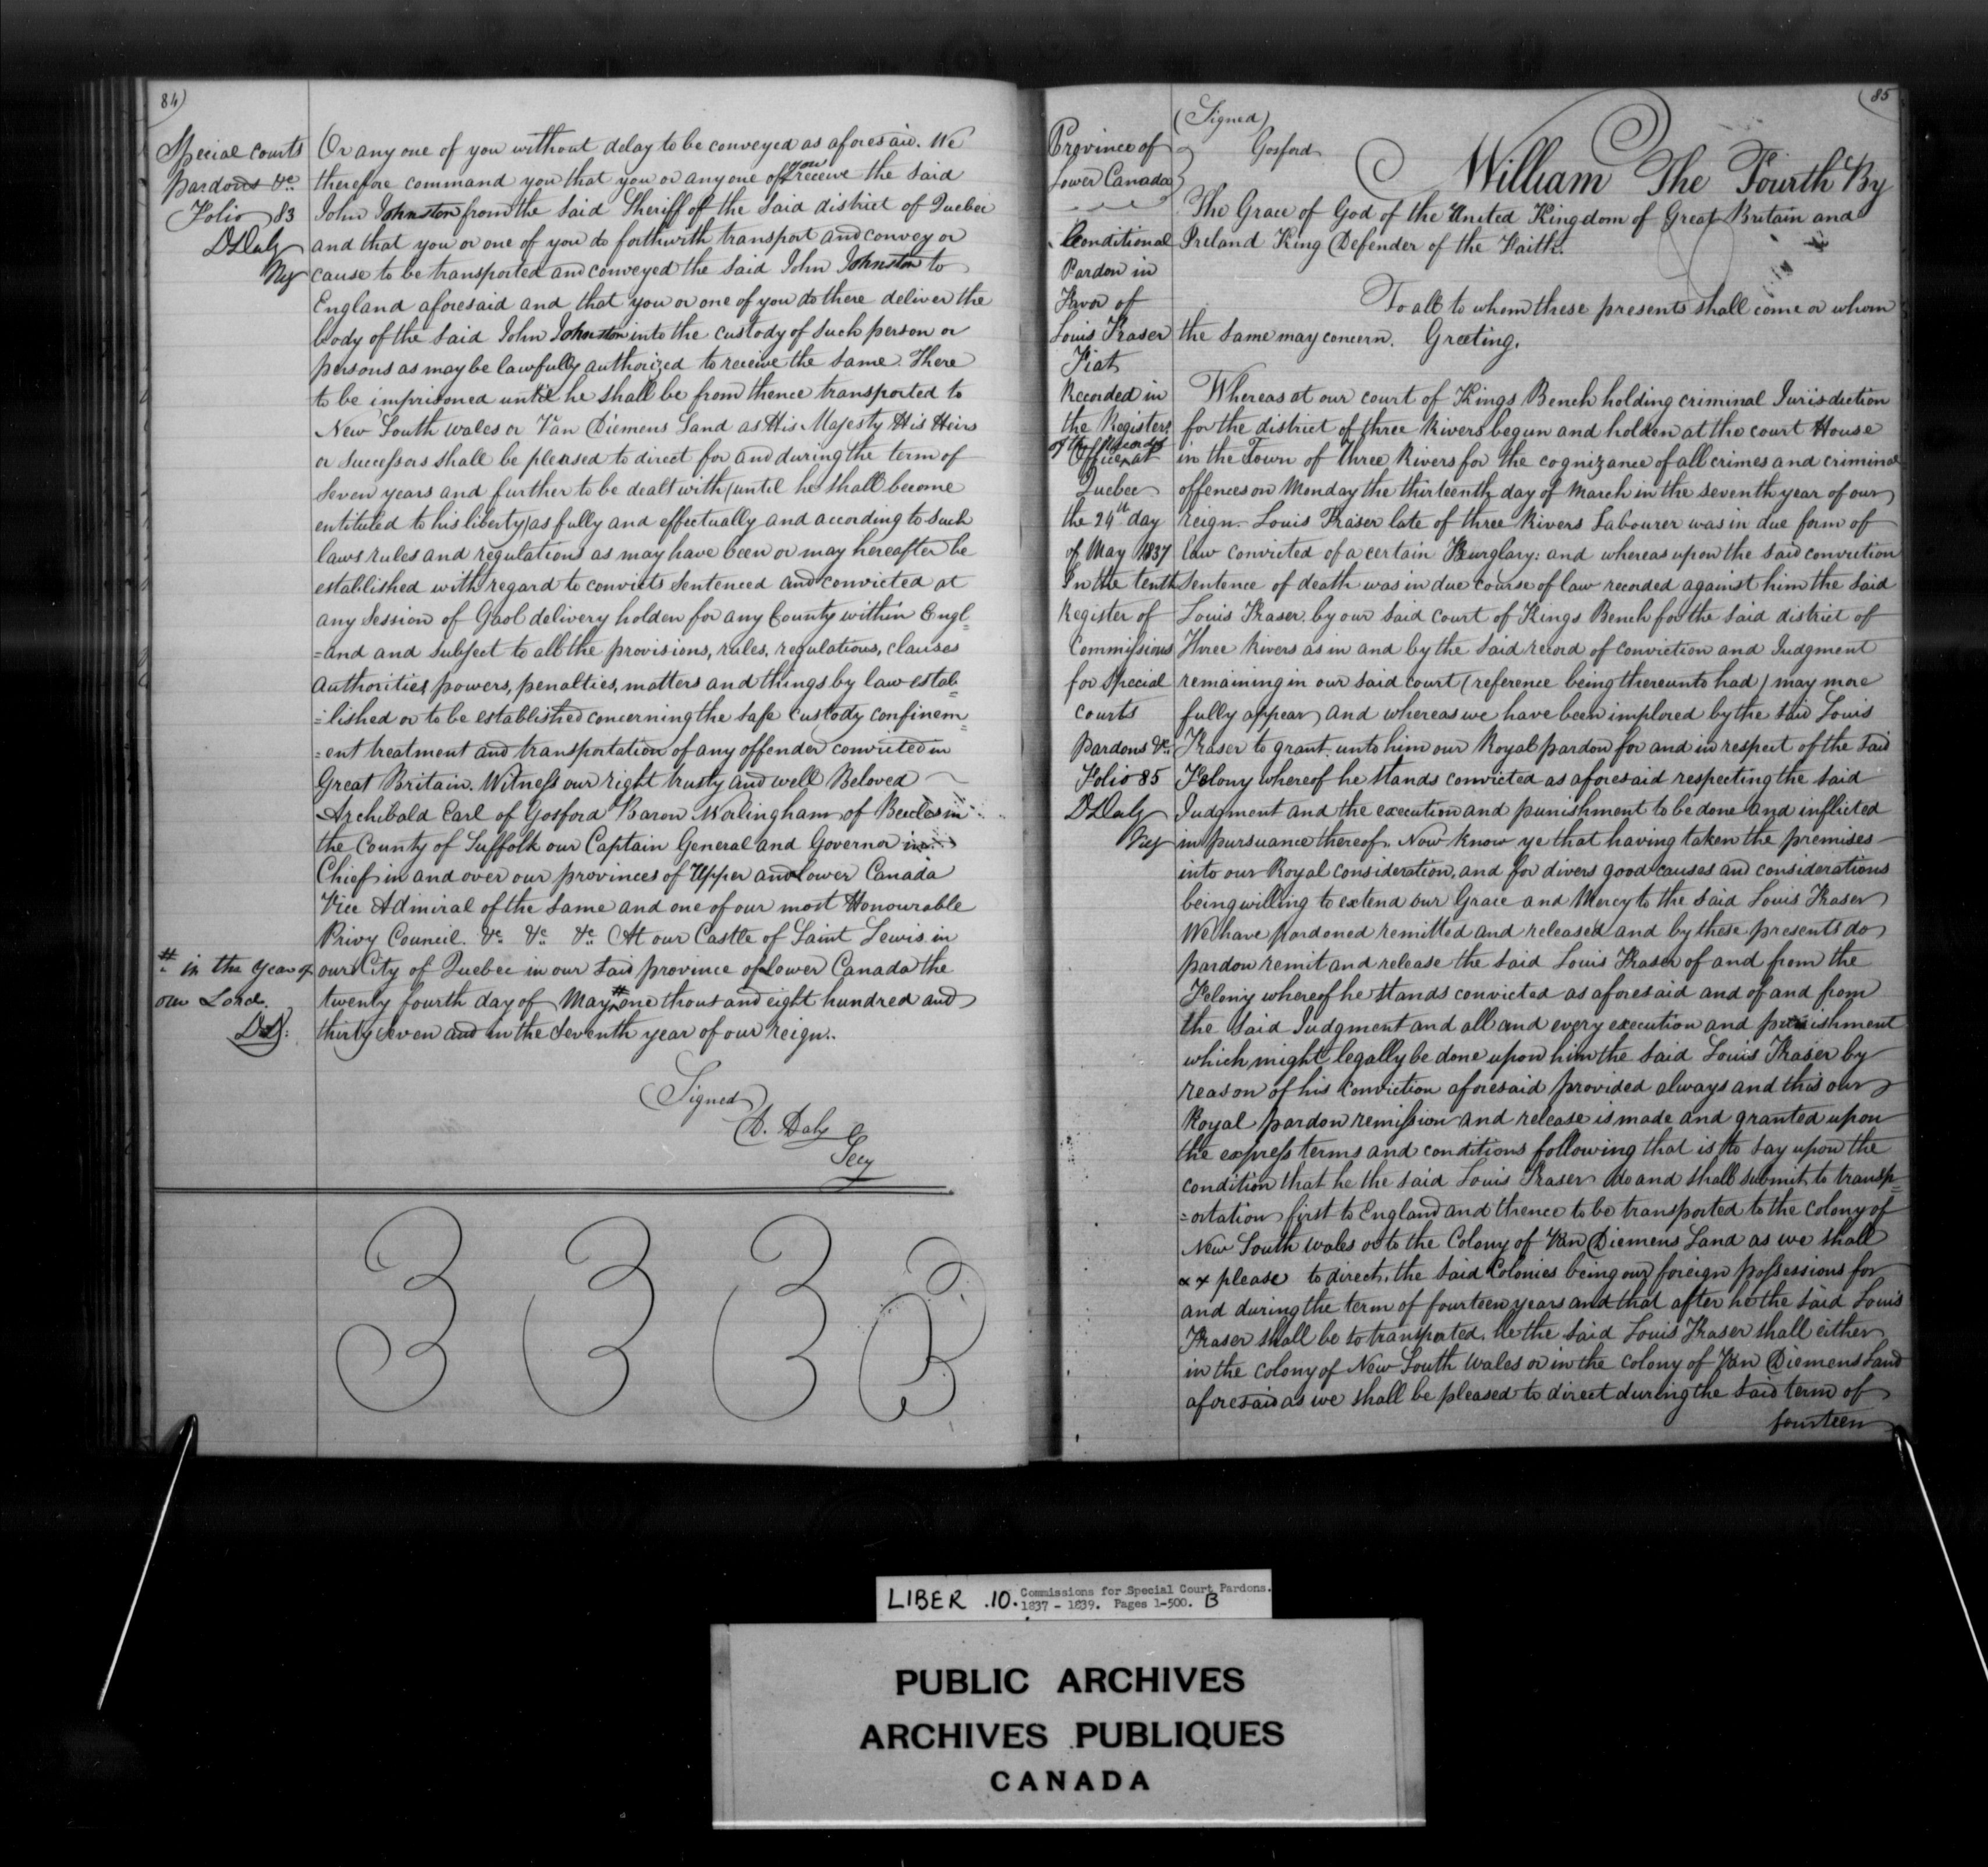 84)
Special Courts
Pardons &c.
Folio 83
D Daly
Reg
Or any one of you without delay to be conveyed as aforesaid. We
therefore command you that you or any one of you receive the said
John Johnston from the said Sheriff of the said district of Quebec
and that you or one of you do forthwith transport and convey or
cause to be transported and conveyed the said John Johnston to
England aforesaid and that you or one of you do there deliver the
body of the said John Johnston into the custody of such person or
persons as may be lawfully authorized to receive the same. There
to be imprisoned until he shall be from thence transported to
New South Wales or Van Diemens Land as His Majesty His Heirs
or Successors shall be pleased to direct for and during the term of
Seven years and further to be dealt with (until he shall become
entituled to his liberty) as fully and effectually and according to such
laws rules and regulations as may have been or may hereafter be
established with regard to convicts sentenced and convicted at
any Session of Gaol delivery holden for any County within Engl=
=and and subject to all the provisions, rules, regulations, clauses
authorities, powers, penalties, matters and things by law estab=
=lished or to be established concerning the safe custody confinem=
=ent treatment and transportation of any offender convicted in
Great Britain. Witness our right trusty and well Beloved
Archibald Earl of Gosford Baron Worlingham of Beccles in
the County of Suffolk our Captain General and Governor in
Chief in and over our provinces of Upper and Lower Canada
Vice Admiral of the same and one of our most Honourable
Privy Council. &c. &c. &c. At our Castle of Saint Lewis in
our City of Quebec in our said province of Lower Canada the
twenty fourth day of May # one thousand eight hundred and
thirty seven and in the Seventh year of our reign.
# in the year of
our Lord.
D.D:
Signed
D. Daly
Secy
(85
Province of
Lower Canada
(Signed)
Gosford
Conditional
Pardon in
Favor of
Louis Fraser
Fiat
Recorded in
the Register
of the Records
Office at
Quebec
the 24th day
of May 1837
In the tenth
Register of
Commissions
for Special
Courts
Pardons &c.
Folio 85
D Daly
Reg
William The Fourth By
The Grace of God of the United Kingdom of Great Britain and
Ireland King Defender of the Faith.
To all to whom these presents shall come or whom
the same may concern. Greeting.
Whereas at our court of Kings Bench holding criminal Jurisdiction
for the district of three Rivers begun and holden at the court House
in the Town of Three Rivers for the cognizance of all crimes and criminal
offences on Monday the thirteenth day of March in the seventh year of our
reign Louis Fraser late of three Rivers Labourer was in due form of
law convicted of a certain Burglary: and whereas upon the said conviction
Sentence of death was in due course of law recorded against him the said
Louis Fraser by our said court of Kings Bench for the said district of
Three Rivers as in and by the said record of conviction and Judgment
remaining in our said court (reference being thereunto had) may more
fully appear and whereas we have been implored by the said Louis
Fraser to grant unto him our Royal pardon for and in respect of the said
Felony whereof he stands convicted as aforesaid respecting the said
Judgment and the execution and punishment to be done and inflicted
in pursuance thereof. Now know ye that having taken the premises
into our Royal consideration, and for divers good causes and considerations
being willing to extend our Grace and Mercy to the said Louis Fraser
We have pardoned remitted and released and by these presents do
pardon remit and release the said Louis Fraser of and from the
Felony whereof he stands convicted as aforesaid and of and from
the said Judgment and all and every execution and punishment
which might legally be done upon him the said Louis Fraser by
reason of his conviction aforesaid provided always and this our
Royal pardon remission and release is made and granted upon
the express terms and conditions following that is to say upon the
condition that he the said Louis Fraser do and shall submit to transp=
=ortation first to England and thence to be transported to the colony of
New South Wales or to the Colony of Van Diemens Land as we shall
x x please to direct, the said Colonies being our foreign possessions for
and during the term of fourteen years and that after he the said Louis
Fraser shall be so transported, he the said Louis Fraser shall either
in the colony of New South Wales or in the colony of Van Diemens Land
aforesaid as we shall be pleased to direct during the said term of
fourteen
LIBER .10. Commissions for Special Court Pardons.
1837 - 1839. Pages 1-500. B
PUBLIC ARCHIVES
ARCHIVES PUBLIQUES
CANADA